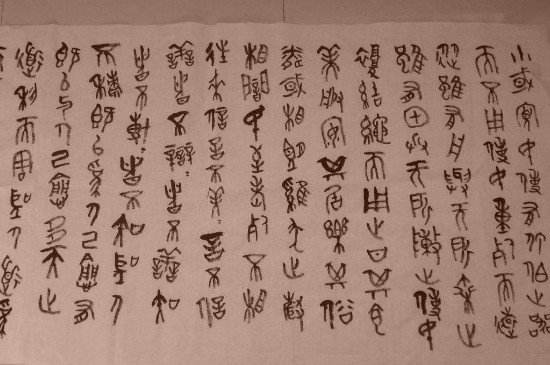 小或寡民使有什佰之器
而不用使民重死而遠
徙雖有舟輿無所乘之
雖有甲兵無所陳之使民
復結繩而用之甘其食
美其服安其居樂其俗
鄰或相望雞犬之聲
相聞民至老死不相
往來信言不美言不信
善者不辯者不善知
者不博者不知聖人
不積既以為人己愈有
既以與人己愈多天之
道利而聖人道為